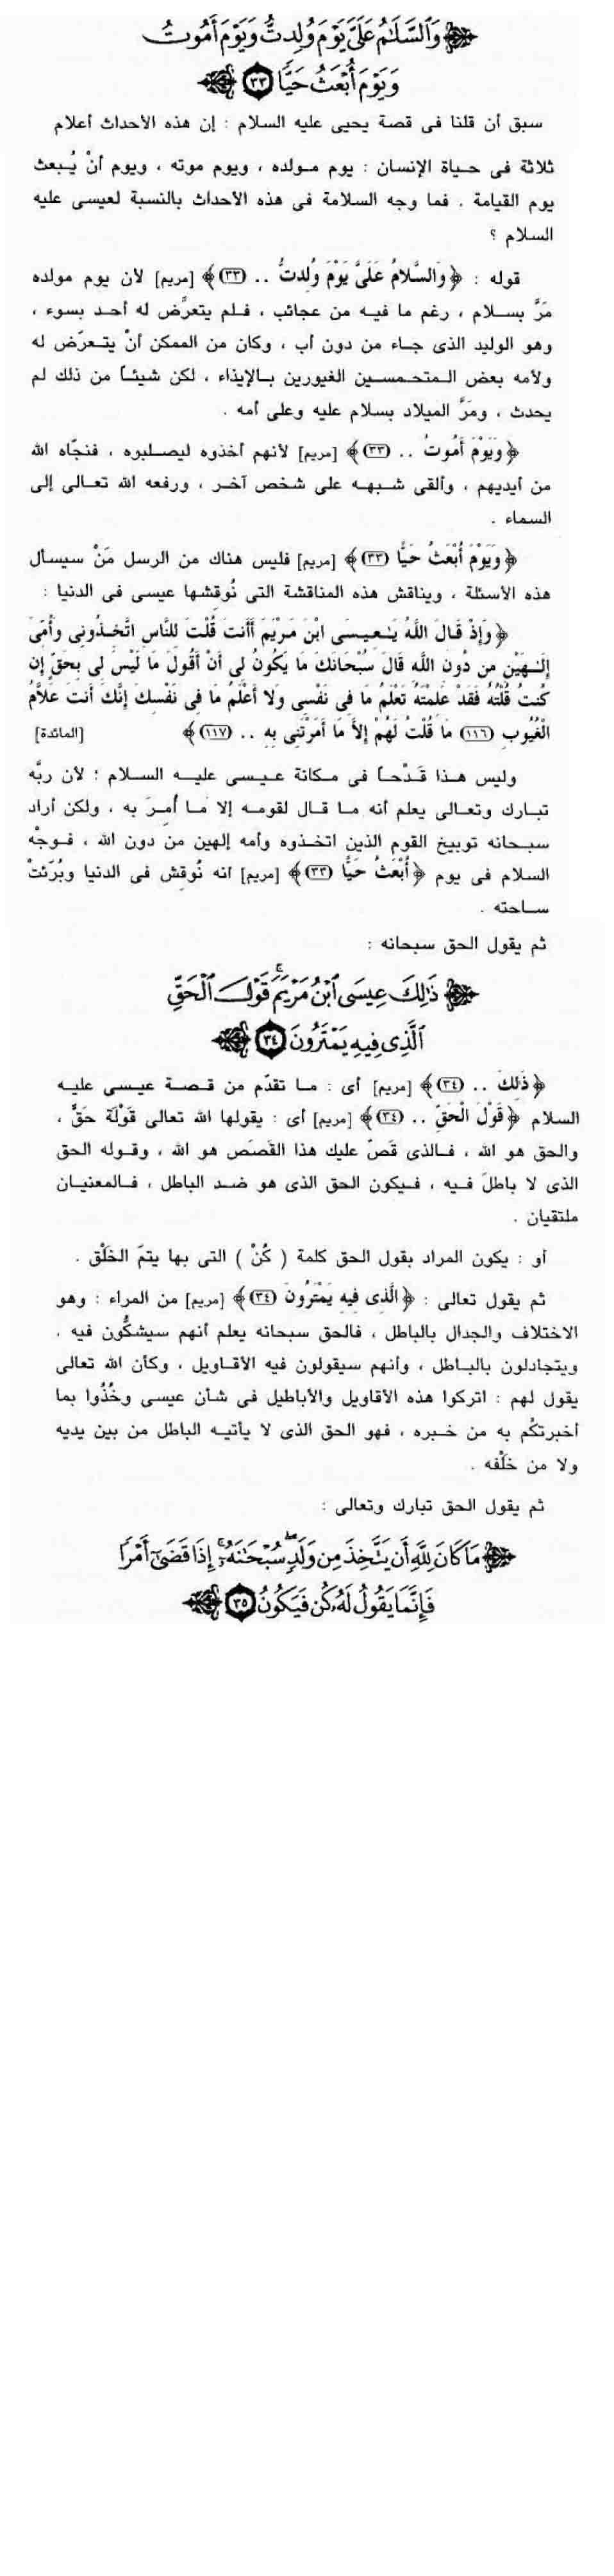 وَٱلسَّلَٰمُ عَلَىَّ يَوْمَ وُلِدتُّ وَيَوْمَ أَمُوتُ
وَيَوْمَ أُبْعَثُ حَيًّا ٣٣
سبق أن قلنا فى قصة يحيى عليه السلام : إن هذه الأحداث أعلام
ثلاثة فى حياة الإنسان : يوم مولده ، ويوم موته ، ويوم أنْ يُبعث
يوم القيامة . فما وجه السلامة فى هذه الأحداث بالنسبة لعيسى عليه
السلام ؟
قوله : ﴿وَالسَّلامُ عَلَىَّ يَوْمَ وُلِدتُّ .. (٣٣)﴾ [مريم] لأن يوم مولده
مَرَّ بسلام ، رغم ما فيه من عجائب ، فلم يتعرَّض له أحد بسوء ،
وهو الوليد الذى جاء من دون أب ، وكان من الممكن أنْ يتعرّض له
ولأمه بعض المتحمسين الغيورين بالإيذاء ، لكن شيئاً من ذلك لم
يحدث ، ومَرَّ الميلاد بسلام عليه وعلى أمه .
﴿وَيَوْمَ أَمُوتُ .. (٣٣)﴾ [مريم] لأنهم أخذوه ليصلبوه ، فنجّاه الله
من أيديهم ، وألقى شبهه على شخص آخر ، ورفعه الله تعالى إلى
السماء .
﴿وَيَوْمَ أُبْعَثُ حَيًّا (٣٣)﴾ [مريم] فليس هناك من الرسل مَنْ سيسأل
هذه الأسئلة ، ويناقش هذه المناقشة التى نُوقشها عيسى فى الدنيا :
﴿وَإِذْ قَالَ اللَّهُ يَـٰعِيسَى ابْنَ مَرْيَمَ أَأَنتَ قُلْتَ لِلنَّاسِ اتَّخِذُونِى وَأُمِّىَ
إِلَـٰهَيْنِ مِن دُونِ اللَّهِ قَالَ سُبْحَانَكَ مَا يَكُونُ لِى أَنْ أَقُولَ مَا لَيْسَ لِى بِحَقٍّ إِن
كُنتُ قُلْتُهُ فَقَدْ عَلِمْتَهُ تَعْلَمُ مَا فِى نَفْسِى وَلا أَعْلَمُ مَا فِى نَفْسِكَ إِنَّكَ أَنتَ عَلاَّمُ
الْغُيُوبِ (١١٦) مَا قُلْتُ لَهُمْ إِلاَّ مَا أَمَرْتَنِى بِهِ .. (١١٧)﴾ [المائدة]
وليس هذا قَدْحاً فى مكانة عيسى عليه السلام ؛ لأن ربَّه
تبارك وتعالى يعلم أنه ما قال لقومه إلا ما أُمِرَ به ، ولكن أراد
سبحانه توبيخ القوم الذين اتخذوه وأمه إلهين من دون الله ، فوجْه
السلام فى يوم ﴿أُبْعَثُ حَيًّا (٣٣)﴾ [مريم] أنه نُوقش فى الدنيا وبُرِّئتْ
ساحته .
ثم يقول الحق سبحانه :
ذَٰلِكَ عِيسَى ٱبْنُ مَرْيَمَ ۚ قَوْلَ ٱلْحَقِّ
ٱلَّذِى فِيهِ يَمْتَرُونَ ٣٤
﴿ذَلِكَ .. (٣٤)﴾ [مريم] أى : ما تقدّم من قصة عيسى عليه
السلام ﴿قَوْلَ الْحَقِّ .. (٣٤)﴾ [مريم] أى : يقولها الله تعالى قَوْلَة حَقٍّ ،
والحق هو الله ، فالذى قَصَّ عليك هذا القَصَص هو الله ، وقوله الحق
الذى لا باطلَ فيه ، فيكون الحق الذى هو ضد الباطل ، فالمعنيان
ملتقيان .
أو : يكون المراد بقول الحق كلمة ( كُنْ ) التى بها يتمّ الخَلْق .
ثم يقول تعالى : ﴿الَّذِى فِيهِ يَمْتَرُونَ (٣٤)﴾ [مريم] من المراء : وهو
الاختلاف والجدال بالباطل ، فالحق سبحانه يعلم أنهم سيشكُّون فيه ،
ويتجادلون بالباطل ، وأنهم سيقولون فيه الأقاويل ، وكأن الله تعالى
يقول لهم : اتركوا هذه الأقاويل والأباطيل فى شأن عيسى وخُذُوا بما
أخبرتكُم به من خبره ، فهو الحق الذى لا يأتيه الباطل من بين يديه
ولا من خَلْفه .
ثم يقول الحق تبارك وتعالى :
مَا كَانَ لِلَّهِ أَن يَتَّخِذَ مِن وَلَدٍ ۖ سُبْحَٰنَهُۥٓ ۚ إِذَا قَضَىٰٓ أَمْرًا
فَإِنَّمَا يَقُولُ لَهُۥ كُن فَيَكُونُ ٣٥